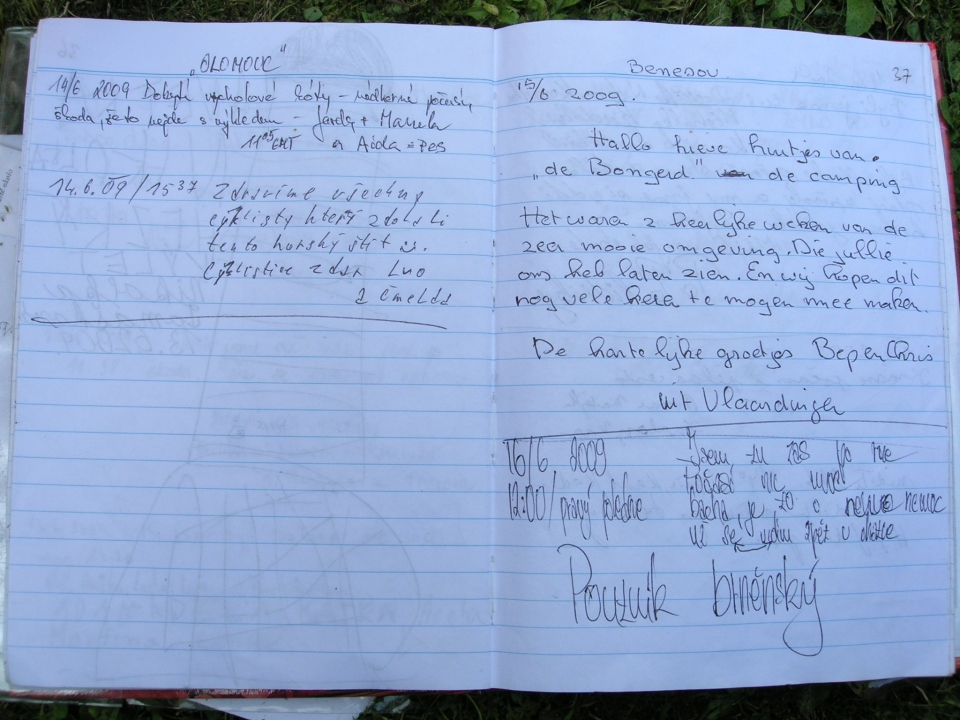 „OLOMOUC"
14/6 2009 Dobytí vrcholové kóty – nádherné počasí,
škoda, že to nejde s výhledem – Jarda + Marcela
11²⁵ GMT a Aida = pes
14.6.09/15³⁷ Zdravíme všechny
cyklisty kteří zdolali
tento horský štít
Cyklistice zdar
Benesov 37
15/6 2009.
Hallo lieve luitjes van
„de Bongerd" de camping
Het waren 2 heerlijke weken van de
zeer mooie omgeving. Die jullie
ons heb laten zien. En wij hopen dit
nog vele keren te mogen mee maken.
De hartelijke groetjes Bep en Chris
uit Vlaardingen
16/6 2009 Jsem tu zas po
12:00/pravý poledne bacha, je to o nemoc
už se zpět v
Poutník brněnský